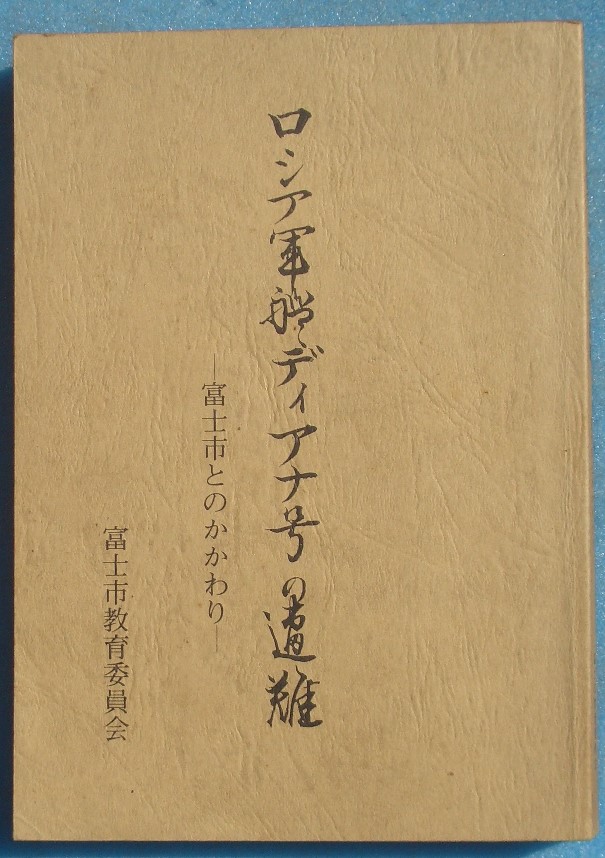 ロシア軍艦ディアナ号の遭難
―富士市とのかかわり―
富士市教育委員会